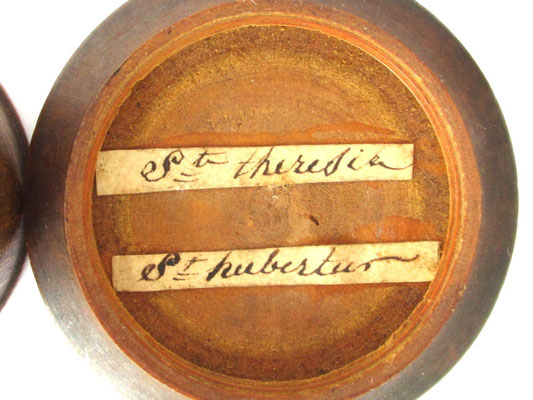 Sta theresia
St hubertus